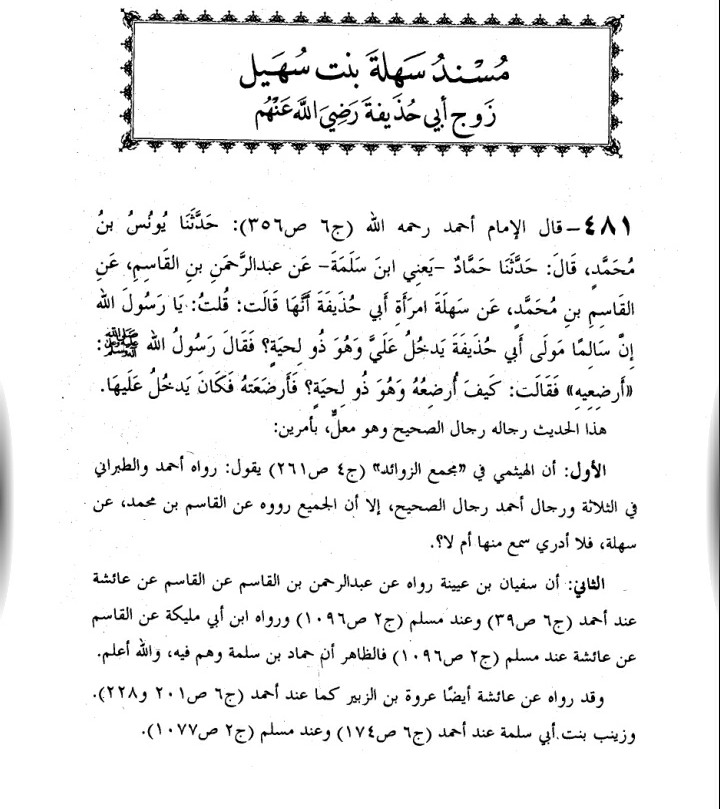 مُسْنَدُ سَهلَةَ بنت سُهَيل
زَوج أبي حُذَيفَةَ رَضِيَ اللَّه عَنْهُم
٤٨١- قال الإمام أحمد رحمه الله (ج٦ ص٣٥٦): حَدَّثَنَا يُونُسُ بنُ
مُحَمَّدٍ، قَالَ: حَدَّثَنَا حَمَّادٌ -يَعنِي ابنَ سَلَمَةَ- عَن عبدالرَّحمَنِ بنِ القَاسِمِ، عَنِ
القَاسِمِ بنِ مُحَمَّدٍ، عَن سَهلَةَ امرَأَةِ أَبي حُذَيفَةَ أَنَّهَا قَالَت: قُلتُ: يَا رَسُولَ الله
إِنَّ سَالِمًا مَولَى أَبي حُذَيفَةَ يَدخُلُ عَلَيَّ وَهُوَ ذُو لِحيَةٍ؟ فَقَالَ رَسُولُ الله ﷺ:
«أَرضِعِيهِ» فَقَالَت: كَيفَ أُرضِعُهُ وَهُوَ ذُو لِحيَةٍ؟ فَأَرضَعَتهُ فَكَانَ يَدخُلُ عَلَيهَا.
هذا الحديث رجاله رجال الصحيح وهو معلٌّ، بأمرين:
الأول: أن الهيثمي في «مجمع الزوائد» (ج٤ ص٢٦١) يقول: رواه أحمد والطبراني
في الثلاثة ورجال أحمد رجال الصحيح، إلا أن الجميع رووه عن القاسم بن محمد، عن
سهلة، فلا أدري سمع منها أم لا؟.
الثاني: أن سفيان بن عيينة رواه عن عبدالرحمن بن القاسم عن القاسم عن عائشة
عند أحمد (ج٦ ص٣٩) وعند مسلم (ج٢ ص١٠٩٦) ورواه ابن أبي مليكة عن القاسم
عن عائشة عند مسلم (ج٢ ص١٠٩٦) فالظاهر أن حماد بن سلمة وهم فيه، والله أعلم.
وقد رواه عن عائشة أيضًا عروة بن الزبير كما عند أحمد (ج٦ ص٢٠١ و٢٢٨).
وزينب بنت أبي سلمة عند أحمد (ج٦ ص١٧٤) وعند مسلم (ج٢ ص١٠٧٧).